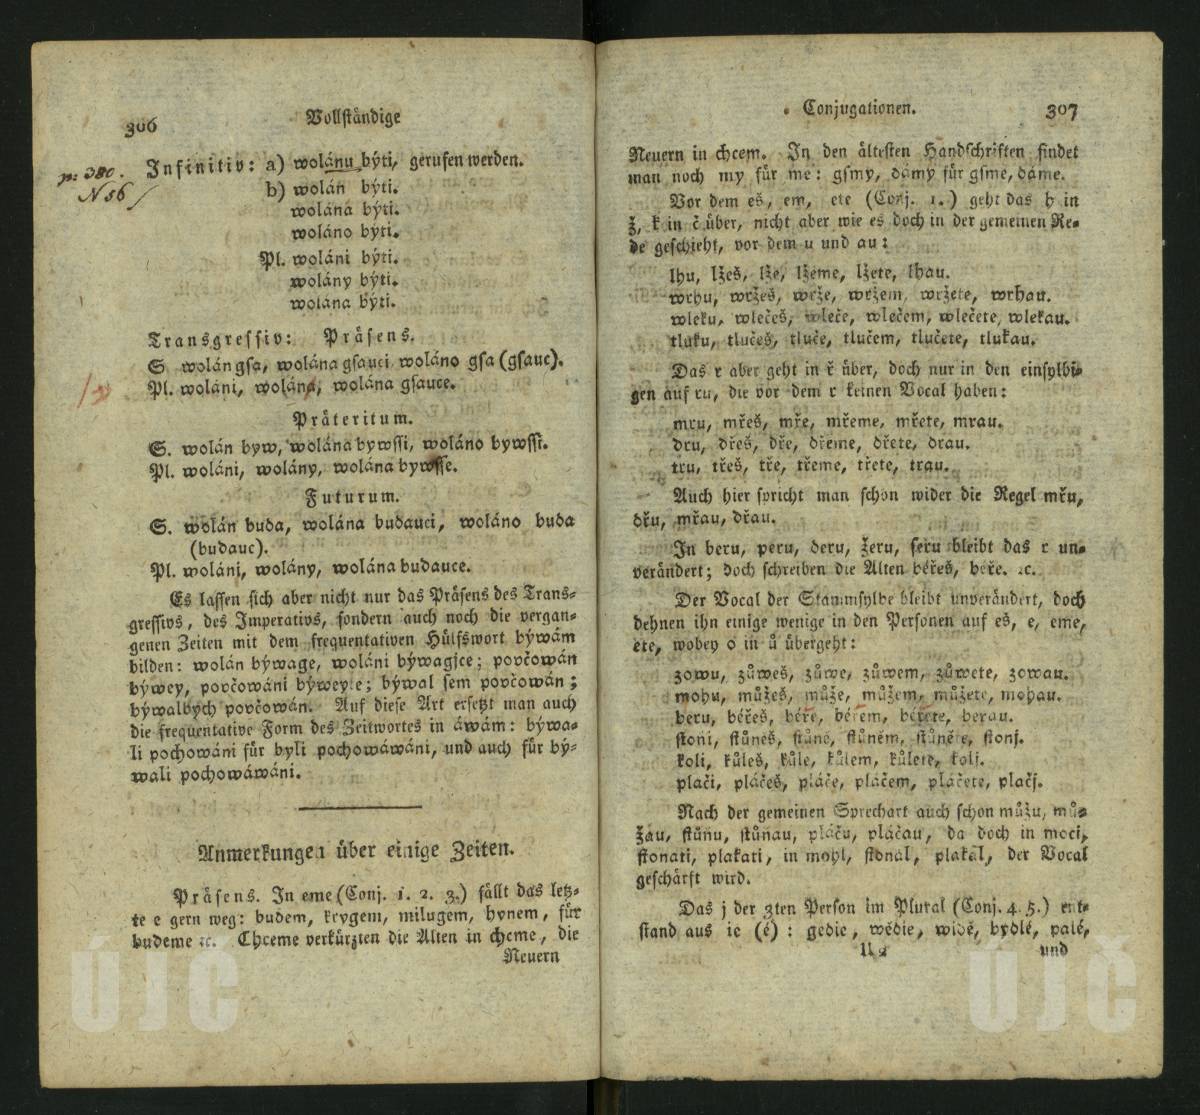 306 Vollständige
p: 380.
N 56
Infinitiv: a) wolánu býti, gerufen werden.
b) wolán býti.
wolána býti.
woláno býti.
Pl. woláni býti.
wolány býti.
wolána býti.
Transgressiv: Präsens.
S. wolán gsa, wolána gsauci woláno gsa (gsauc).
Pl. woláni, wolány, wolána gsauce.
Präteritum.
S. wolán byw, wolána bywssi, woláno bywssi.
Pl. woláni, wolány, wolána bywsse.
Futurum.
S. wolán buda, wolána budauci, woláno buda
(budauc).
Pl. woláni, wolány, wolána budauce.
Es lassen sich aber nicht nur das Präsens des Trans-
gressivs, des Imperativs, sondern auch noch die vergan-
genen Zeiten mit dem frequentativen Hülfswort býwám
bilden: wolán býwage, woláni býwagjce; poočowán
býwey, poočowáni býweyte; býwal sem poočowán;
býwalbych poočowán. Auf diese Art ersetzt man auch
die frequentative Form des Zeitwortes in áwám: býwa-
li pochowáni für byli pochowáwáni, und auch für bý-
wali pochowáwáni.
Anmerkungen über einige Zeiten.
Präsens. In eme (Conj. 1. 2. 3.) fällt das letz-
te e gern weg: budem, krygem, milugem, hynem, für
budeme ꝛc. Chceme verkürzten die Alten in chcme, die
Neuern
Conjugationen. 307
Neuern in chcem. In den ältesten Handschriften findet
man noch my für me: gsmy, dámy für gsme, dáme.
Vor dem eš, em, ete (Conj. 1.) geht das h in
ž, k in č über, nicht aber wie es doch in der gemeinen Re-
de geschieht, vor dem u und au:
lhu, lžeš, lže, lžeme, lžete, lhau.
wrhu, wržeš, wrže, wržem, wržete, wrhau.
wleku, wlečeš, wleče, wlečem, wlečete, wlekau.
tluku, tlučeš, tluče, tlučem, tlučete, tlukau.
Das r aber geht in ř über, doch nur in den einsylbi-
gen auf ru, die vor dem r keinen Vocal haben:
mru, mřeš, mře, mřeme, mřete, mrau.
dru, dřeš, dře, dřeme, dřete, drau.
tru, třeš, tře, třeme, třete, trau.
Auch hier spricht man schon wider die Regel mřu,
dřu, mřau, dřau.
In beru, peru, deru, žeru, seru bleibt das r un-
verändert; doch schreiben die Alten béřeš, béře. ꝛc.
Der Vocal der Stammsylbe bleibt unverändert, doch
dehnen ihn einige wenige in den Personen auf eš, e, eme,
ete, wobey o in ů übergeht:
zowu, zůweš, zůwe, zůwem, zůwete, zowau.
mohu, můžeš, může, můžem, můžete, mohau.
beru, béřeš, béře, béřem, béřete, berau.
stoni, stůněš, stůně, stůněm, stůněte, stonj.
koli, kůleš, kůle, kůlem, kůlete, kolj.
plači, pláčeš, pláče, pláčem, pláčete, plačj.
Nach der gemeinen Sprechart auch schon můžu, mů-
žau, stůňu, stůňau, pláču, pláčau, da doch in moci,
stonati, plakati, in mohl, stonal, plakal, der Vocal
geschärft wird.
Das j der 3ten Person im Plural (Conj. 4. 5.) ent-
stand aus ie (é): gedie, wědie, widé, bydlé, palé,
und